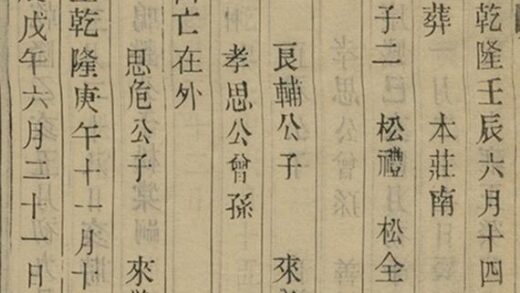 乾隆壬辰六月十四
葬 本莊南
子二 松禮 松全
良輔公子 來
孝思公曾孫
亡在外
思危公子 來
乾隆庚午十一月十
戊午六月二十一日